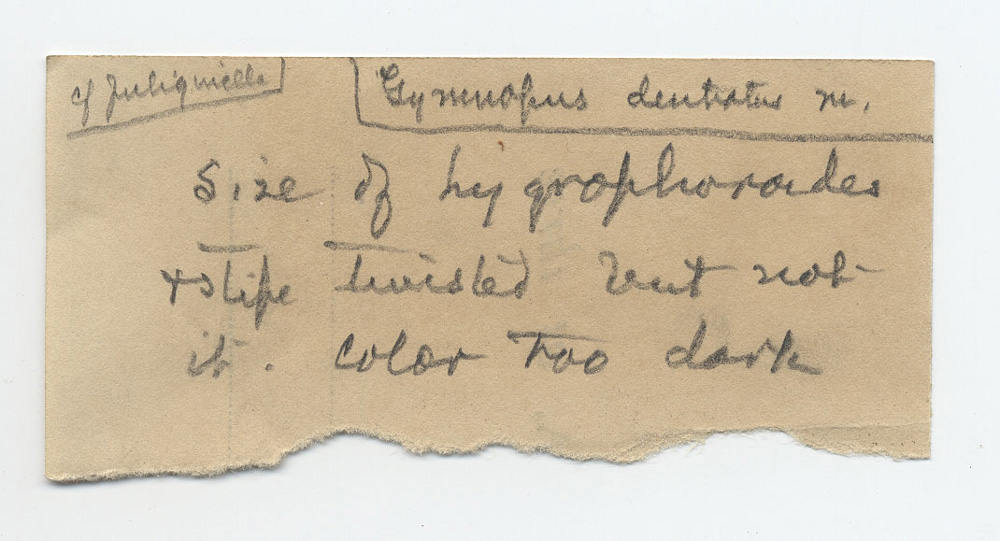 cf fuliginella
Gymnopus dentatus n.
Size of hygrophoroides
+ stipe twisted but not
it. Color too dark